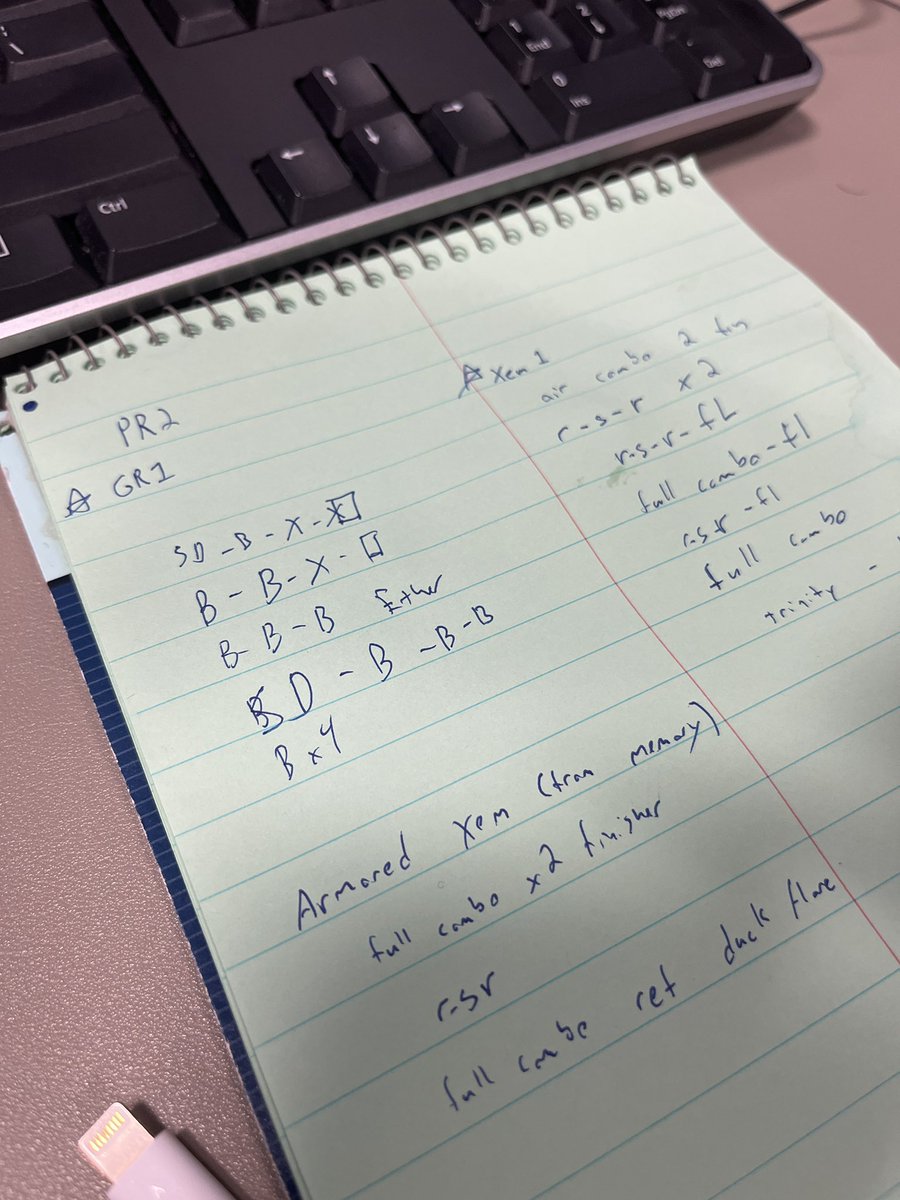 Ctrl
End
Ins
PR2
☆ GR1
SD - B - X - □
B - B - X - □
B - B - B Ether
SD - B - B - B
B x 4
☆ Xem 1
air combo 2 fin
r-s-r x2
r-s-r-fL
full combo-fl
r-s-r-fl
full combo
trinity -
Armored Xem (from memory)
full combo x2 finisher
r-s-r
full combo ret duck flare